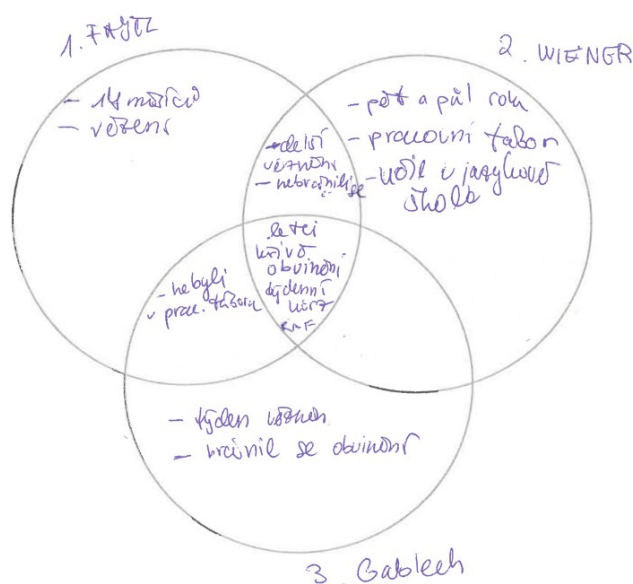 1. FAJTL
2. WIENER
- 14 měsíců
- vězení
- pět a půl roku
- pracovní tábor
- učil v jazykové
škole
- delší
věznění
- nebránili se
letci
křivé
obvinění
týdenní
RAF
- nebyli
v prac. táboru
- týden vězněn
- bránil se obvinění
3 Gablech